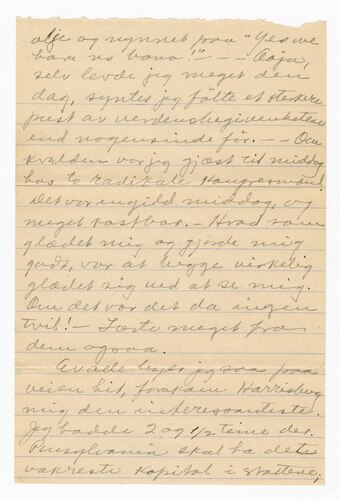 olje og nynnet paa "Yes we
have no bana!" - - - Aaja,
selv levde jeg meget den
dag, syntes jeg følte et sterkere
pust av verdensbegivenhetene
end nogensinde før. - - Om
kvelden var jeg gjæst til middag
hos to radikale Kongresmænd.
Det var en gild middag, og
meget kostbar. - Hvad som
glædet mig og gjorde mig
godt, var at begge virkelig
glædet sig ved at se mig.
Om det var det da ingen
tvil! - Lærte meget fra
dem ogsaa.
Av alle byer jeg saa paa
veien hit, forekom Harrisburg
mig den interessanteste.
Jeg hadde 2 og 1/2 time der.
Pensylvania skal ha det
vakreste kapitol i statene,